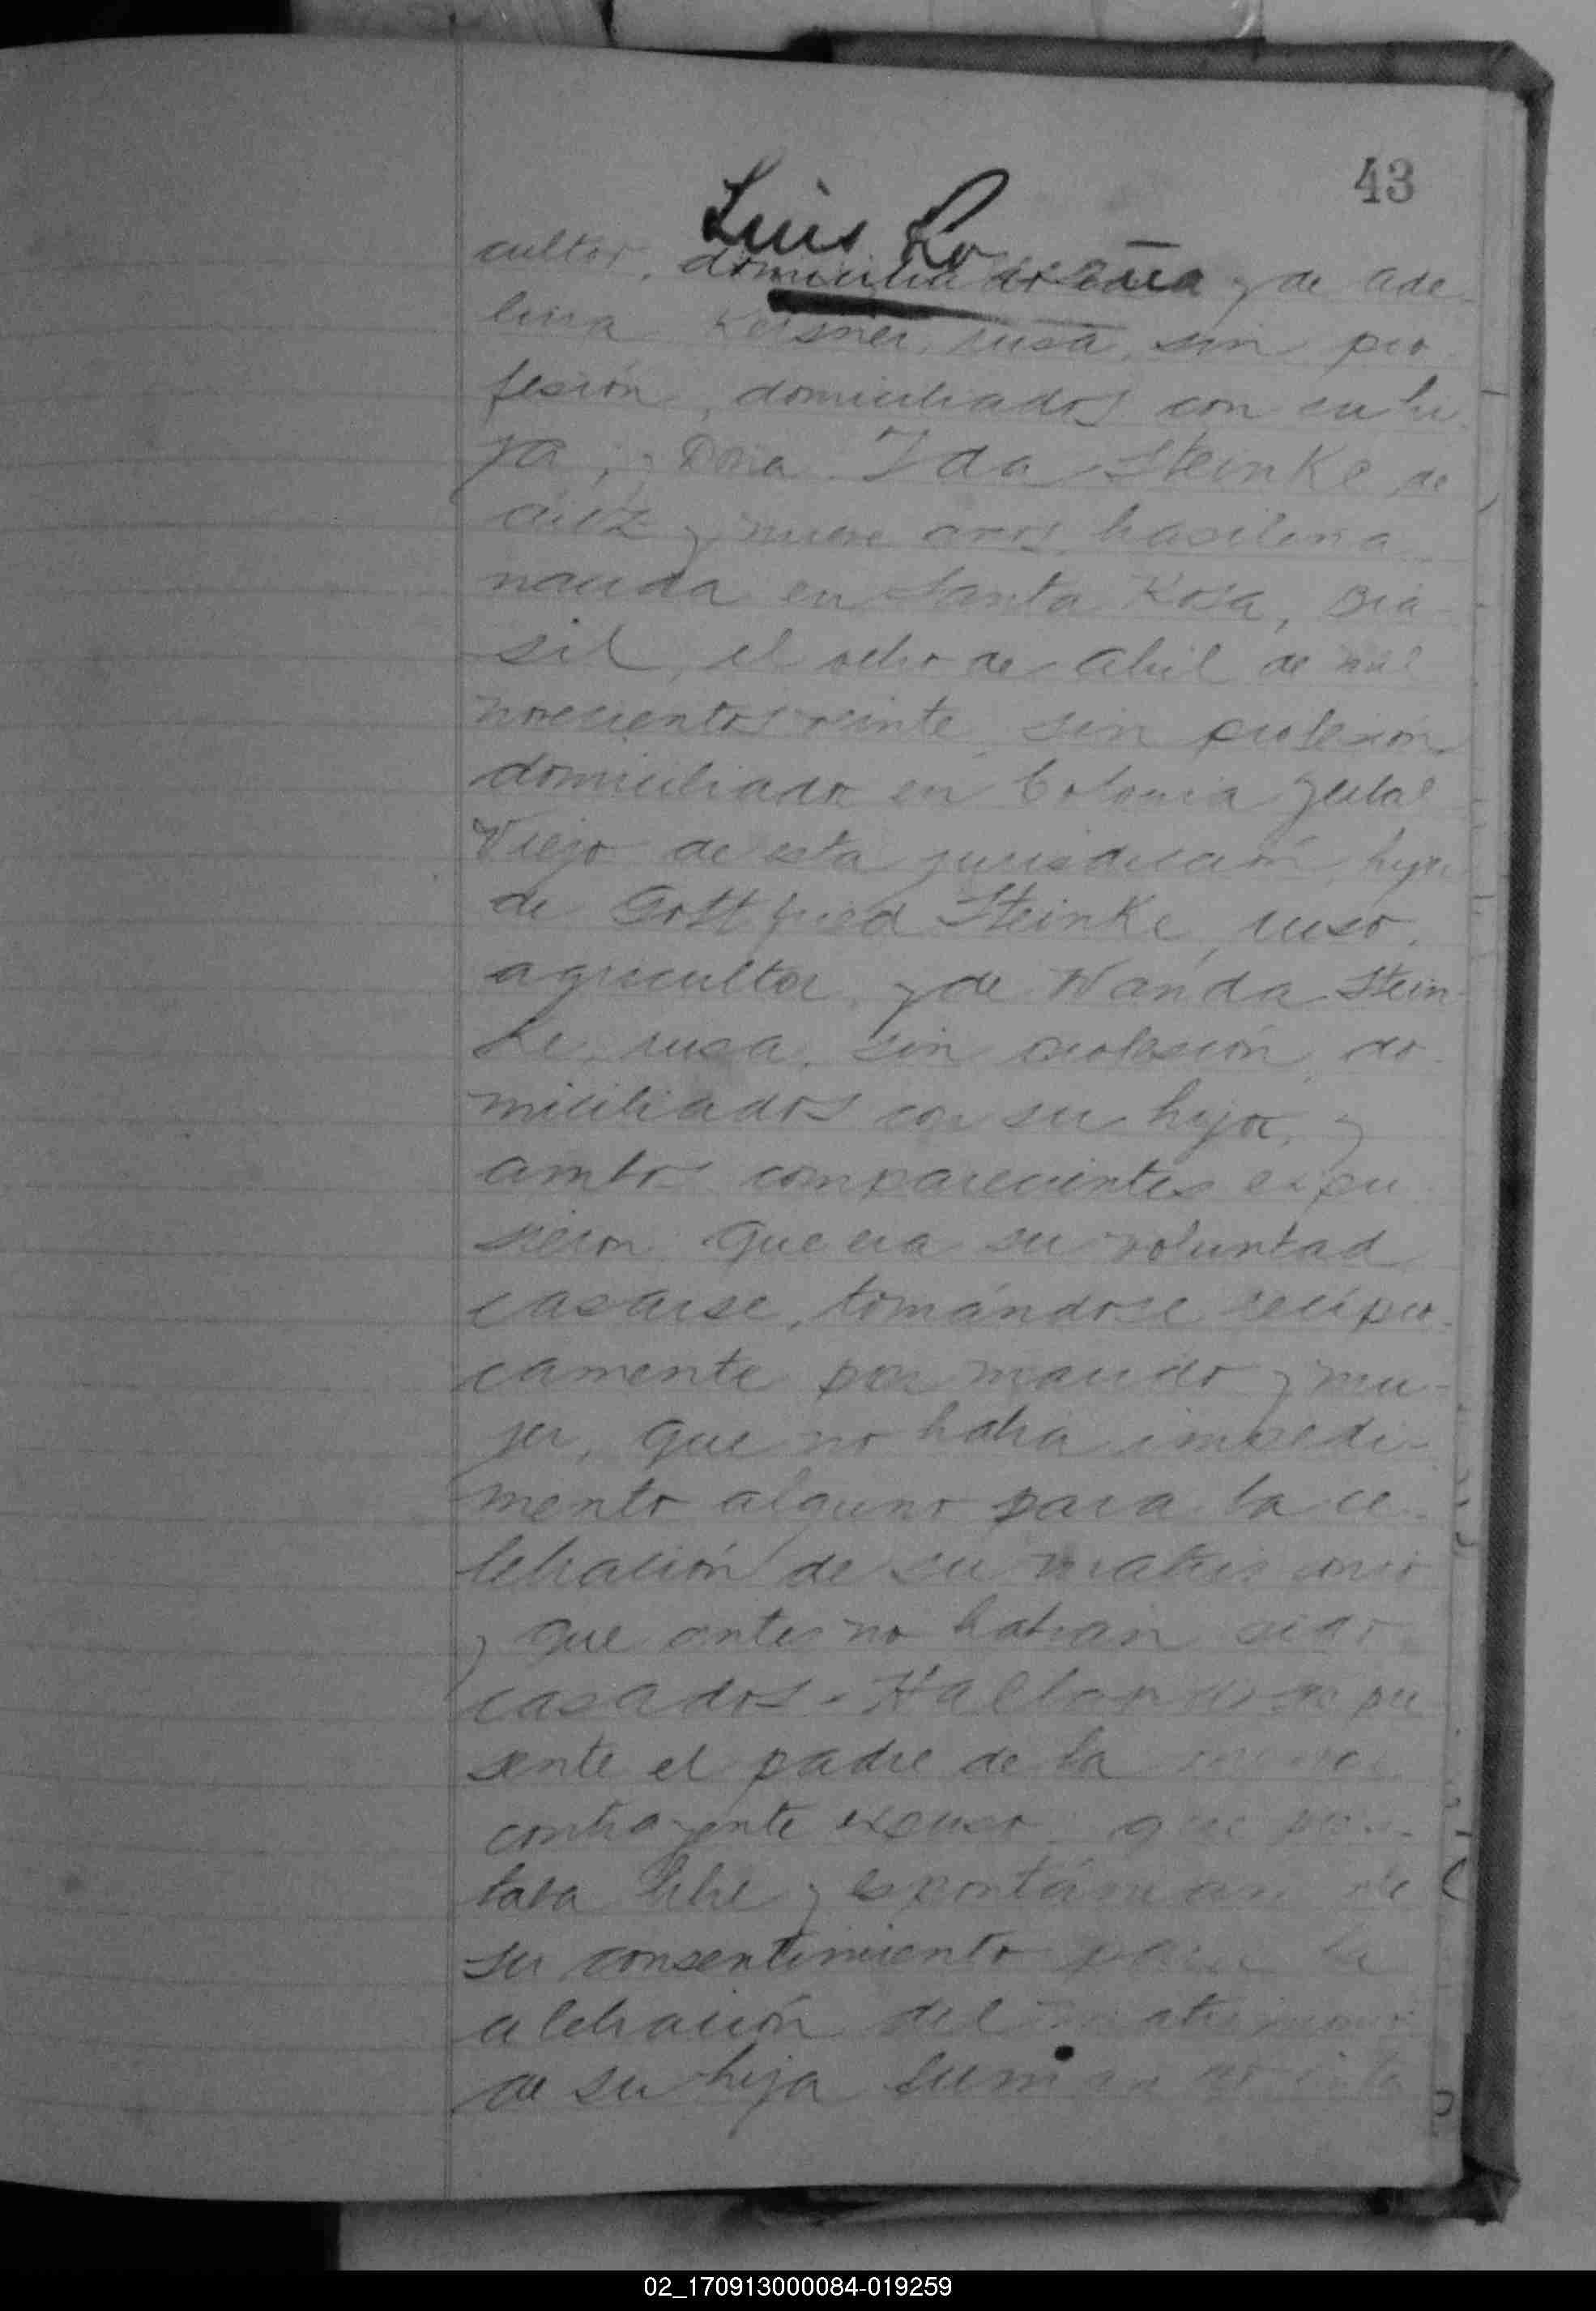 43
Luis Lo
cultor, domiciliado y de Ade-
lina Kersner, rusa, sin pro
fesión, domiciliados con su hi
ja, y Doña Ida Steinke de
diéz y nueve años, brasilena
nacida en Santa Rosa, Bra
sil, el ocho de Abril de mil
novecientos veinte, sin profesión
domiciliada en Colonia Yerbal
Viejo de esta jurisdicción, hija
de Gottfried Steinke, ruso,
agricultor, y de Wanda Stein-
ke, rusa, sin profesión, do-
miciliados con su hija, y
ambos comparecientes expu
sieron que era su voluntad
casarse, tomándose recípro-
camente por marido y mu-
jer, que no había impedi-
mento alguno para la ce-
lebración de su matrimonio
y que antes no habían sido
casados. Hallandose pre
sente el padre de la
contrayente expuso que pres-
taba libre y espontáneamente
su consentimiento para la
celebración del matrimonio
de su hija
02_170913000084-019259